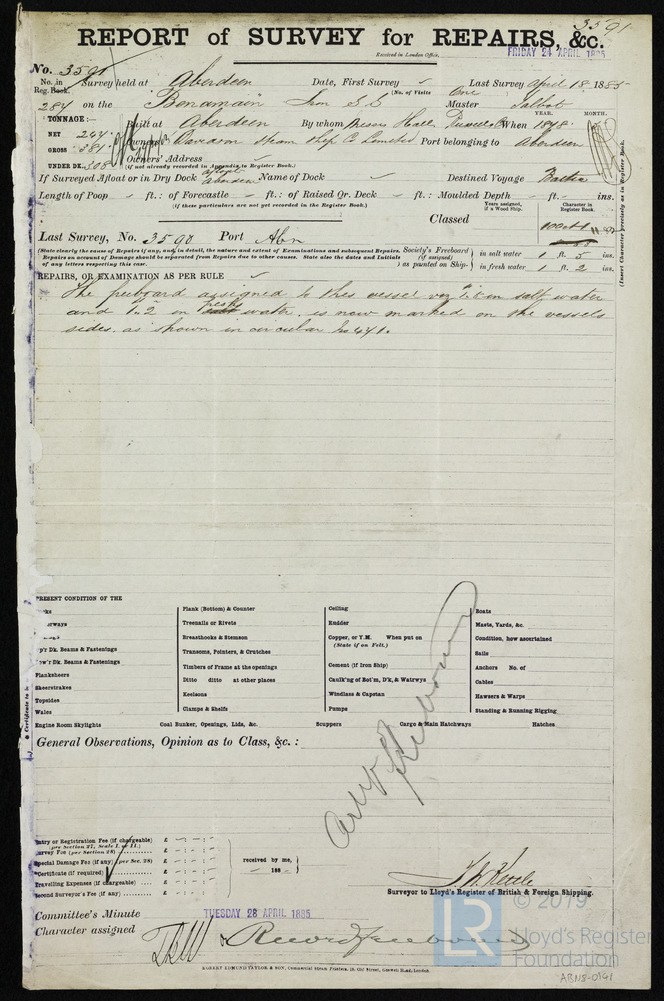 3591
REPORT of SURVEY for REPAIRS, &c.
Received in London Office,
FRIDAY 24 APRIL 1885
No. 3591
No. in Reg. Book. Survey held at Aberdeen Date, First Survey Last Survey April 18 1885
(No. of Visits One)
284 on the Benamain Iron SS Master Talbot
TONNAGE:— YEAR. MONTH.
NET 244 Built at Aberdeen By whom Messrs Hall Russell & Co When 1878
GROSS 381 Owners Davidson Steam Ship Co Limited Port belonging to Aberdeen
UNDER DK. 308 Owners' Address
(If not already recorded in Appendix to Register Book.)
If Surveyed Afloat or in Dry Dock afloat Aberdeen Name of Dock Destined Voyage Baltic
Length of Poop ft.: of Forecastle ft.: of Raised Qr. Deck ft.: Moulded Depth ft. ins.
(If these particulars are not yet recorded in the Register Book.)
Years assigned, if a Wood Ship. Character in Register Book.
Classed 100A1
Last Survey, No. 3590 Port Abn
(State clearly the cause of Repairs if any, and, in detail, the nature and extent of Examinations and subsequent Repairs. Repairs on account of Damage should be separated from Repairs due to other causes. State also the dates and Initials of any letters respecting this case.
Society's Freeboard (if assigned) as painted on Ship- in salt water 1 ft. 5 ins.
in fresh water 1 ft. 2 ins.
(Insert Character precisely as in Register Book.
REPAIRS, OR EXAMINATION AS PER RULE
The freeboard assigned to this vessel viz in salt water
and 1.2 in fresh water. is now marked on the vessels
sides. as shown in circular No 471.
PRESENT CONDITION OF THE
Dk. Beams & Fastenings
Dk. Beams & Fastenings
Planksheers
Sheerstrakes
Topsides
Wales
Engine Room Skylights
Plank (Bottom) & Counter
Treenails or Rivets
Breasthooks & Stemson
Transoms, Pointers, & Crutches
Timbers of Frame at the openings
Ditto ditto at other places
Keelsons
Clamps & Shelfs
Coal Bunker, Openings, Lids, &c.
Ceiling
Rudder
Copper, or Y.M. When put on
(State if on Felt.)
Cement (if Iron Ship)
Caulk'ng of Bot'm, D'k, & Watrwys
Windlass & Capstan
Pumps
Scuppers
Cargo & Main Hatchways
Boats
Masts, Yards, &c.
Condition, how ascertained
Sails
Anchors No. of
Cables
Hawsers & Warps
Standing & Running Rigging
Hatches
Certificate to be
General Observations, Opinion as to Class, &c.:
Freeboard
Entry or Registration Fee (if chargeable) £
(per Section 27, Scale I. or II.)
Survey Fee (per Section 28) £
Special Damage Fee (if any) (per Sec. 28) £
Certificate (if required) £
Travelling Expenses (if chargeable) £
Second Surveyor's Fee (if any) £
received by me,
188
Kettle
Surveyor to Lloyd's Register of British & Foreign Shipping.
Committee's Minute TUESDAY 28 APRIL 1885
Character assigned Record freeboard
ROBERT EDMUND TAYLOR & SON, Commercial Steam Printers, 19, Old Street, Goswell Road, London.
© 2019
LR
Lloyd's Register
Foundation
ABNS-0141